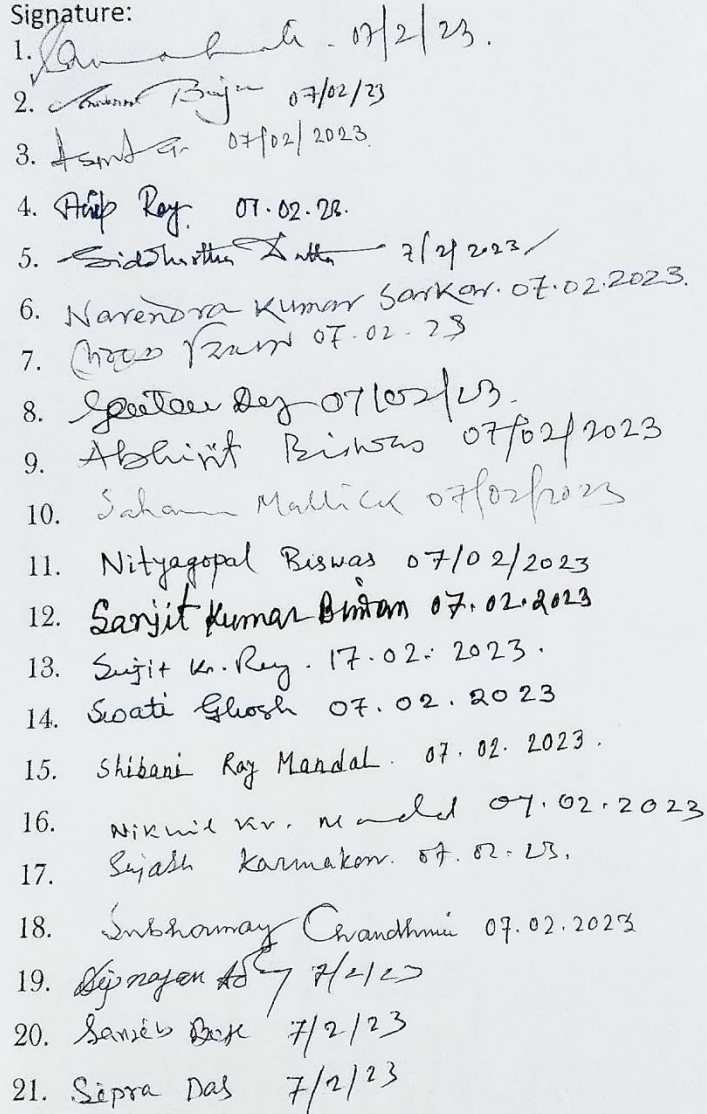 Signature:
1. 07/2/23.
2. 07/02/23
3. 07/02/2023
4. Roy. 07.02.23.
5. Siddhartha Datta 7/2/2023
6. Narendra Kumar Sarkar. 07.02.2023.
7. 07.02.23
8. Dey 07/02/23.
9. Abhijit Biswas 07/02/2023
10. Mallick 07/02/2023
11. Nityagopal Biswas 07/02/2023
12. Sanjit Kumar 07.02.2023
13. Sujit Kr. Roy. 17.02.2023.
14. Swati Ghosh 07.02.2023
15. Shibani Roy Mandal. 07.02.2023.
16. Nikhil Kr. Mandal 07.02.2023
17. Sujash Karmakar. 07.02.23.
18. Subhamay Chaudhuri 07.02.2023
19. 7/2/23
20. Sanjib Bose 7/2/23
21. Sipra Das 7/2/23